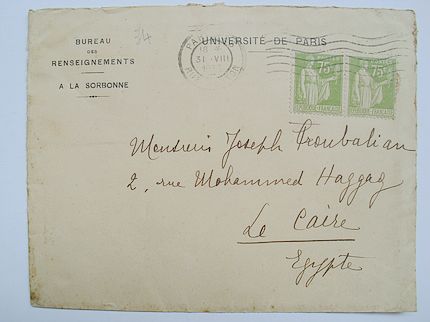 BUREAU
DES
RENSEIGNEMENTS
A LA SORBONNE
34
UNIVERSITÉ DE PARIS
PARIS
31 VIII
75c
75c
POSTES
RÉPUBLIQUE FRANÇAISE
RÉPUBLIQUE FRANÇAISE
Monsieur Joseph Troubalian
2, rue Mohammed Haggag
Le Caire
Egypte